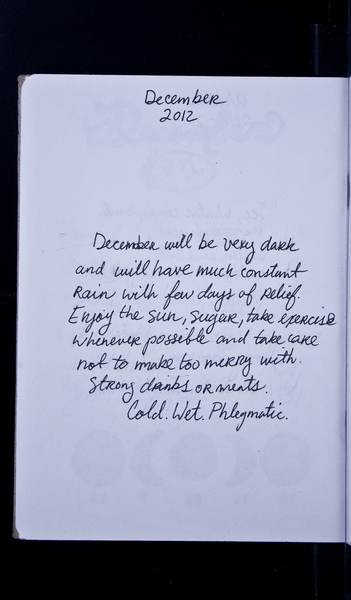 December
2012
December will be very dark
and will have much constant
Rain with few days of Relief.
Enjoy the Sun, Sugar, take exercise
whenever possible and take care
not to make too merry with
Strong drinks or meats.
Cold. Wet. Phlegmatic.